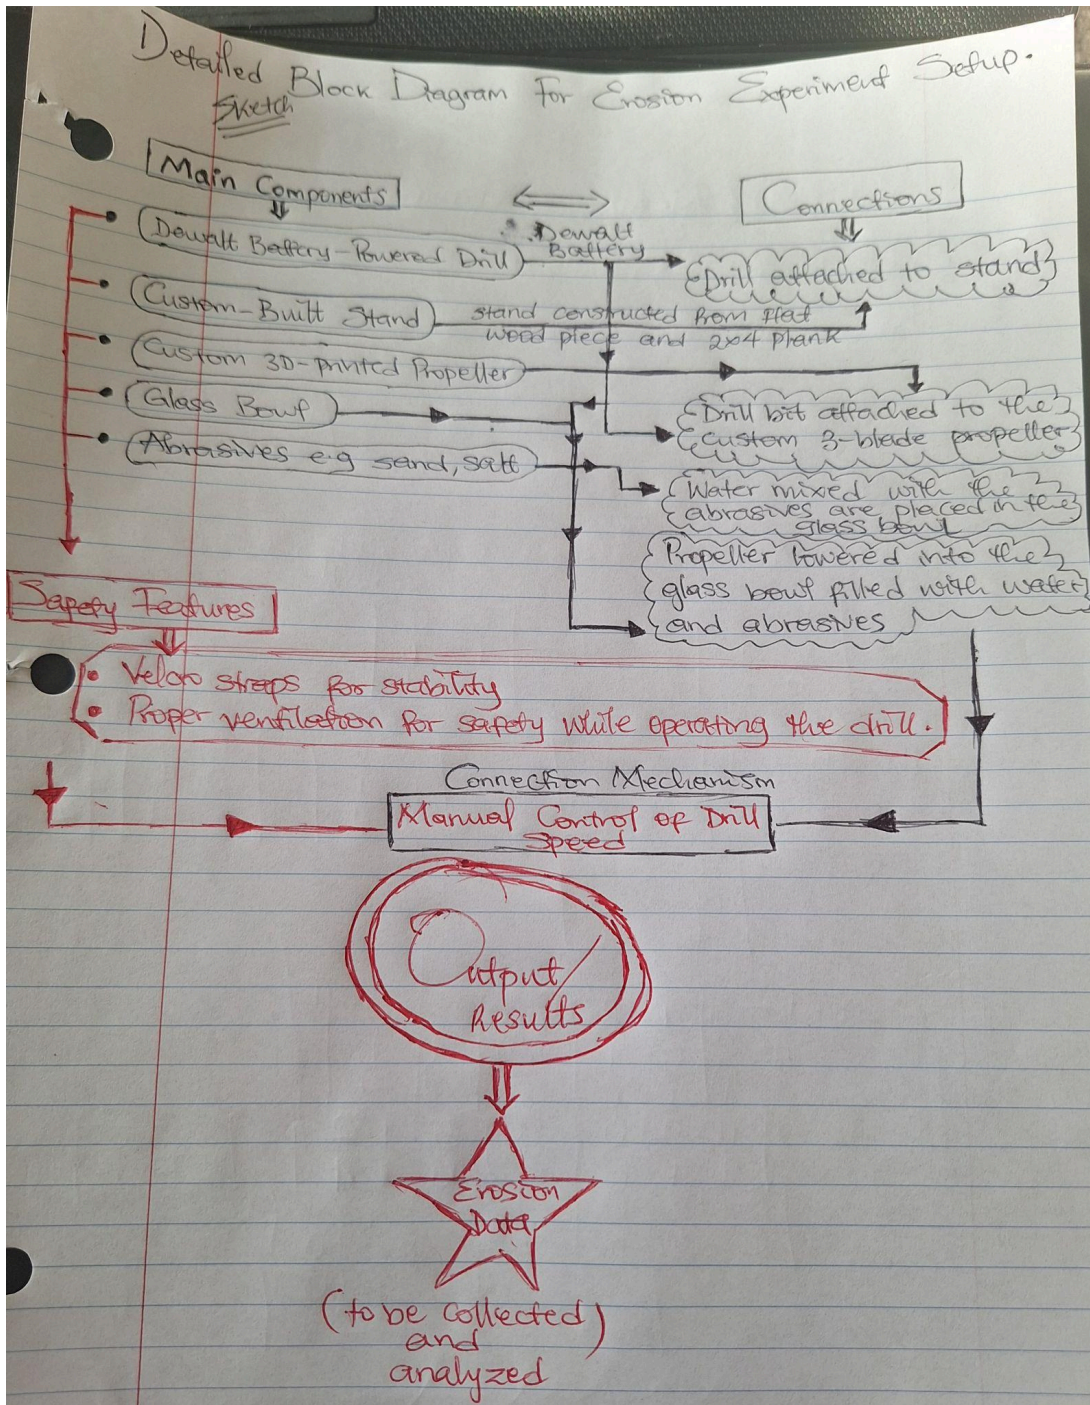 Detailed Block Diagram For Erosion Experiment Setup.
Sketch
Main Components
Connections
Dewalt Battery-Powered Drill
Dewalt
Battery
Drill attached to stand
Custom-Built Stand
stand constructed from flat
wood piece and 2x4 plank
Custom 3D-printed Propeller
Glass Bowl
Drill bit attached to the
custom 3-blade propeller
Abrasives e.g sand, salt
Water mixed with the
abrasives are placed in the
glass bowl
Propeller lowered into the
glass bowl filled with water
and abrasives
Safety Features
• Velcro straps for stability
• Proper ventilation for safety while operating the drill.
Connection Mechanism
Manual Control of Drill
Speed
Output/
Results
Erosion
Data
(to be collected)
and
analyzed